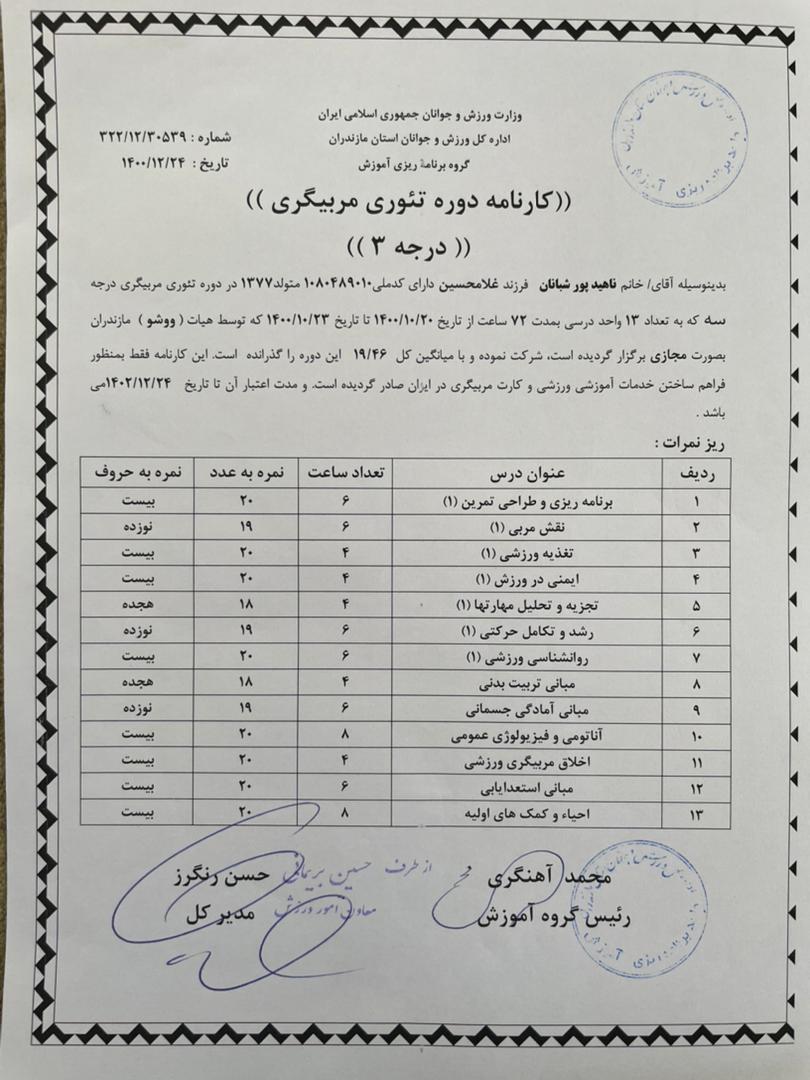 وزارت ورزش و جوانان جمهوری اسلامی ایران
اداره کل ورزش و جوانان استان مازندران
شماره : ۳۲۲/۱۲/۳۰۵۳۹
گروه برنامه ریزی آموزش
تاریخ : ۱۴۰۰/۱۲/۲۴
((کارنامه دوره تئوری مربیگری ))
(( درجه ۳ ))
بدینوسیله آقای/ خانم ناهید پور شبانان فرزند غلامحسین دارای کدملی۱۰۸۰۴۸۹۰۱۰ متولد۱۳۷۷ در دوره تئوری مربیگری درجه
سه که به تعداد ۱۳ واحد درسی بمدت ۷۲ ساعت از تاریخ ۱۴۰۰/۱۰/۲۰ تا تاریخ ۱۴۰۰/۱۰/۲۳ که توسط هیات ( ووشو ) مازندران
بصورت مجازی برگزار گردیده است، شرکت نموده و با میانگین کل ۱۹/۴۶ این دوره را گذرانده است. این کارنامه فقط بمنظور
فراهم ساختن خدمات آموزشی ورزشی و کارت مربیگری در ایران صادر گردیده است. و مدت اعتبار آن تا تاریخ ۱۴۰۲/۱۲/۲۴می
باشد .
ریز نمرات :
ردیف عنوان درس تعداد ساعت نمره به عدد نمره به حروف
۱ برنامه ریزی و طراحی تمرین (۱) ۶ ۲۰ بیست
۲ نقش مربی (۱) ۶ ۱۹ نوزده
۳ تغذیه ورزشی (۱) ۴ ۲۰ بیست
۴ ایمنی در ورزش (۱) ۴ ۲۰ بیست
۵ تجزیه و تحلیل مهارتها (۱) ۴ ۱۸ هجده
۶ رشد و تکامل حرکتی (۱) ۶ ۱۹ نوزده
۷ روانشناسی ورزشی (۱) ۶ ۲۰ بیست
۸ مبانی تربیت بدنی ۴ ۱۸ هجده
۹ مبانی آمادگی جسمانی ۶ ۱۹ نوزده
۱۰ آناتومی و فیزیولوژی عمومی ۸ ۲۰ بیست
۱۱ اخلاق مربیگری ورزشی ۴ ۲۰ بیست
۱۲ مبانی استعدایابی ۶ ۲۰ بیست
۱۳ احیاء و کمک های اولیه ۸ ۲۰ بیست
محمد آهنگری از طرف حسین بریمانی حسن رنگرز
رئیس گروه آموزش معاون امور ورزش مدیر کل